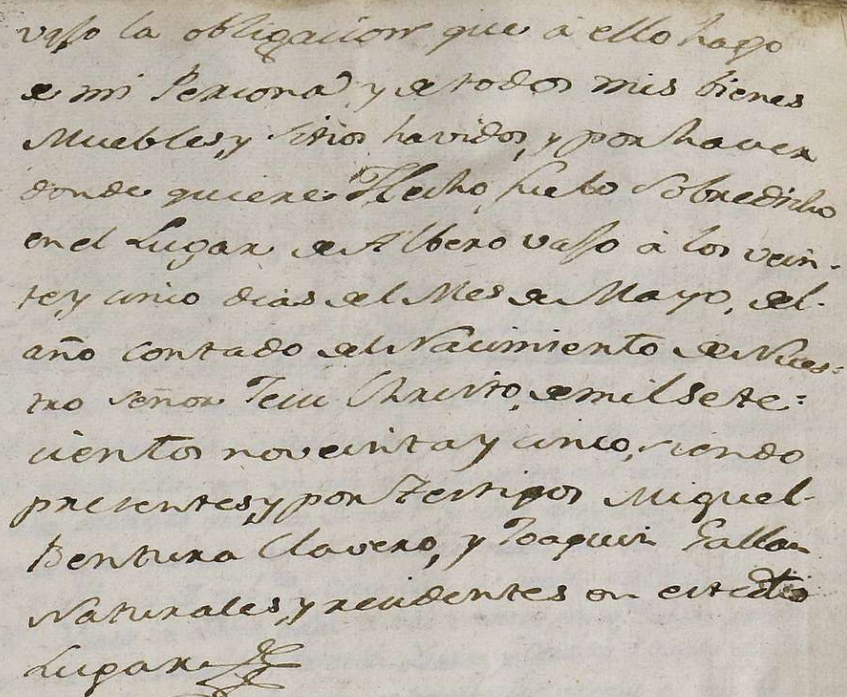 vaso la obligacion que â ello hago
de mi Persona, y de todos mis bienes
Muebles, y sitios havidos, y por haver
donde quiere. Hecho fue lo Sobredicho
en el Lugar de Albero vaso â los vein-
te, y cinco dias del Mes de Mayo, del
año contado del Nacimiento de Nues-
tro señor Jesu Christo, de mil sete-
cientos noventa y cinco, siendo
presentes, y por Testigos Miguel
Bentura Clavero, y Joaquin
Naturales, y residentes en
Lugar